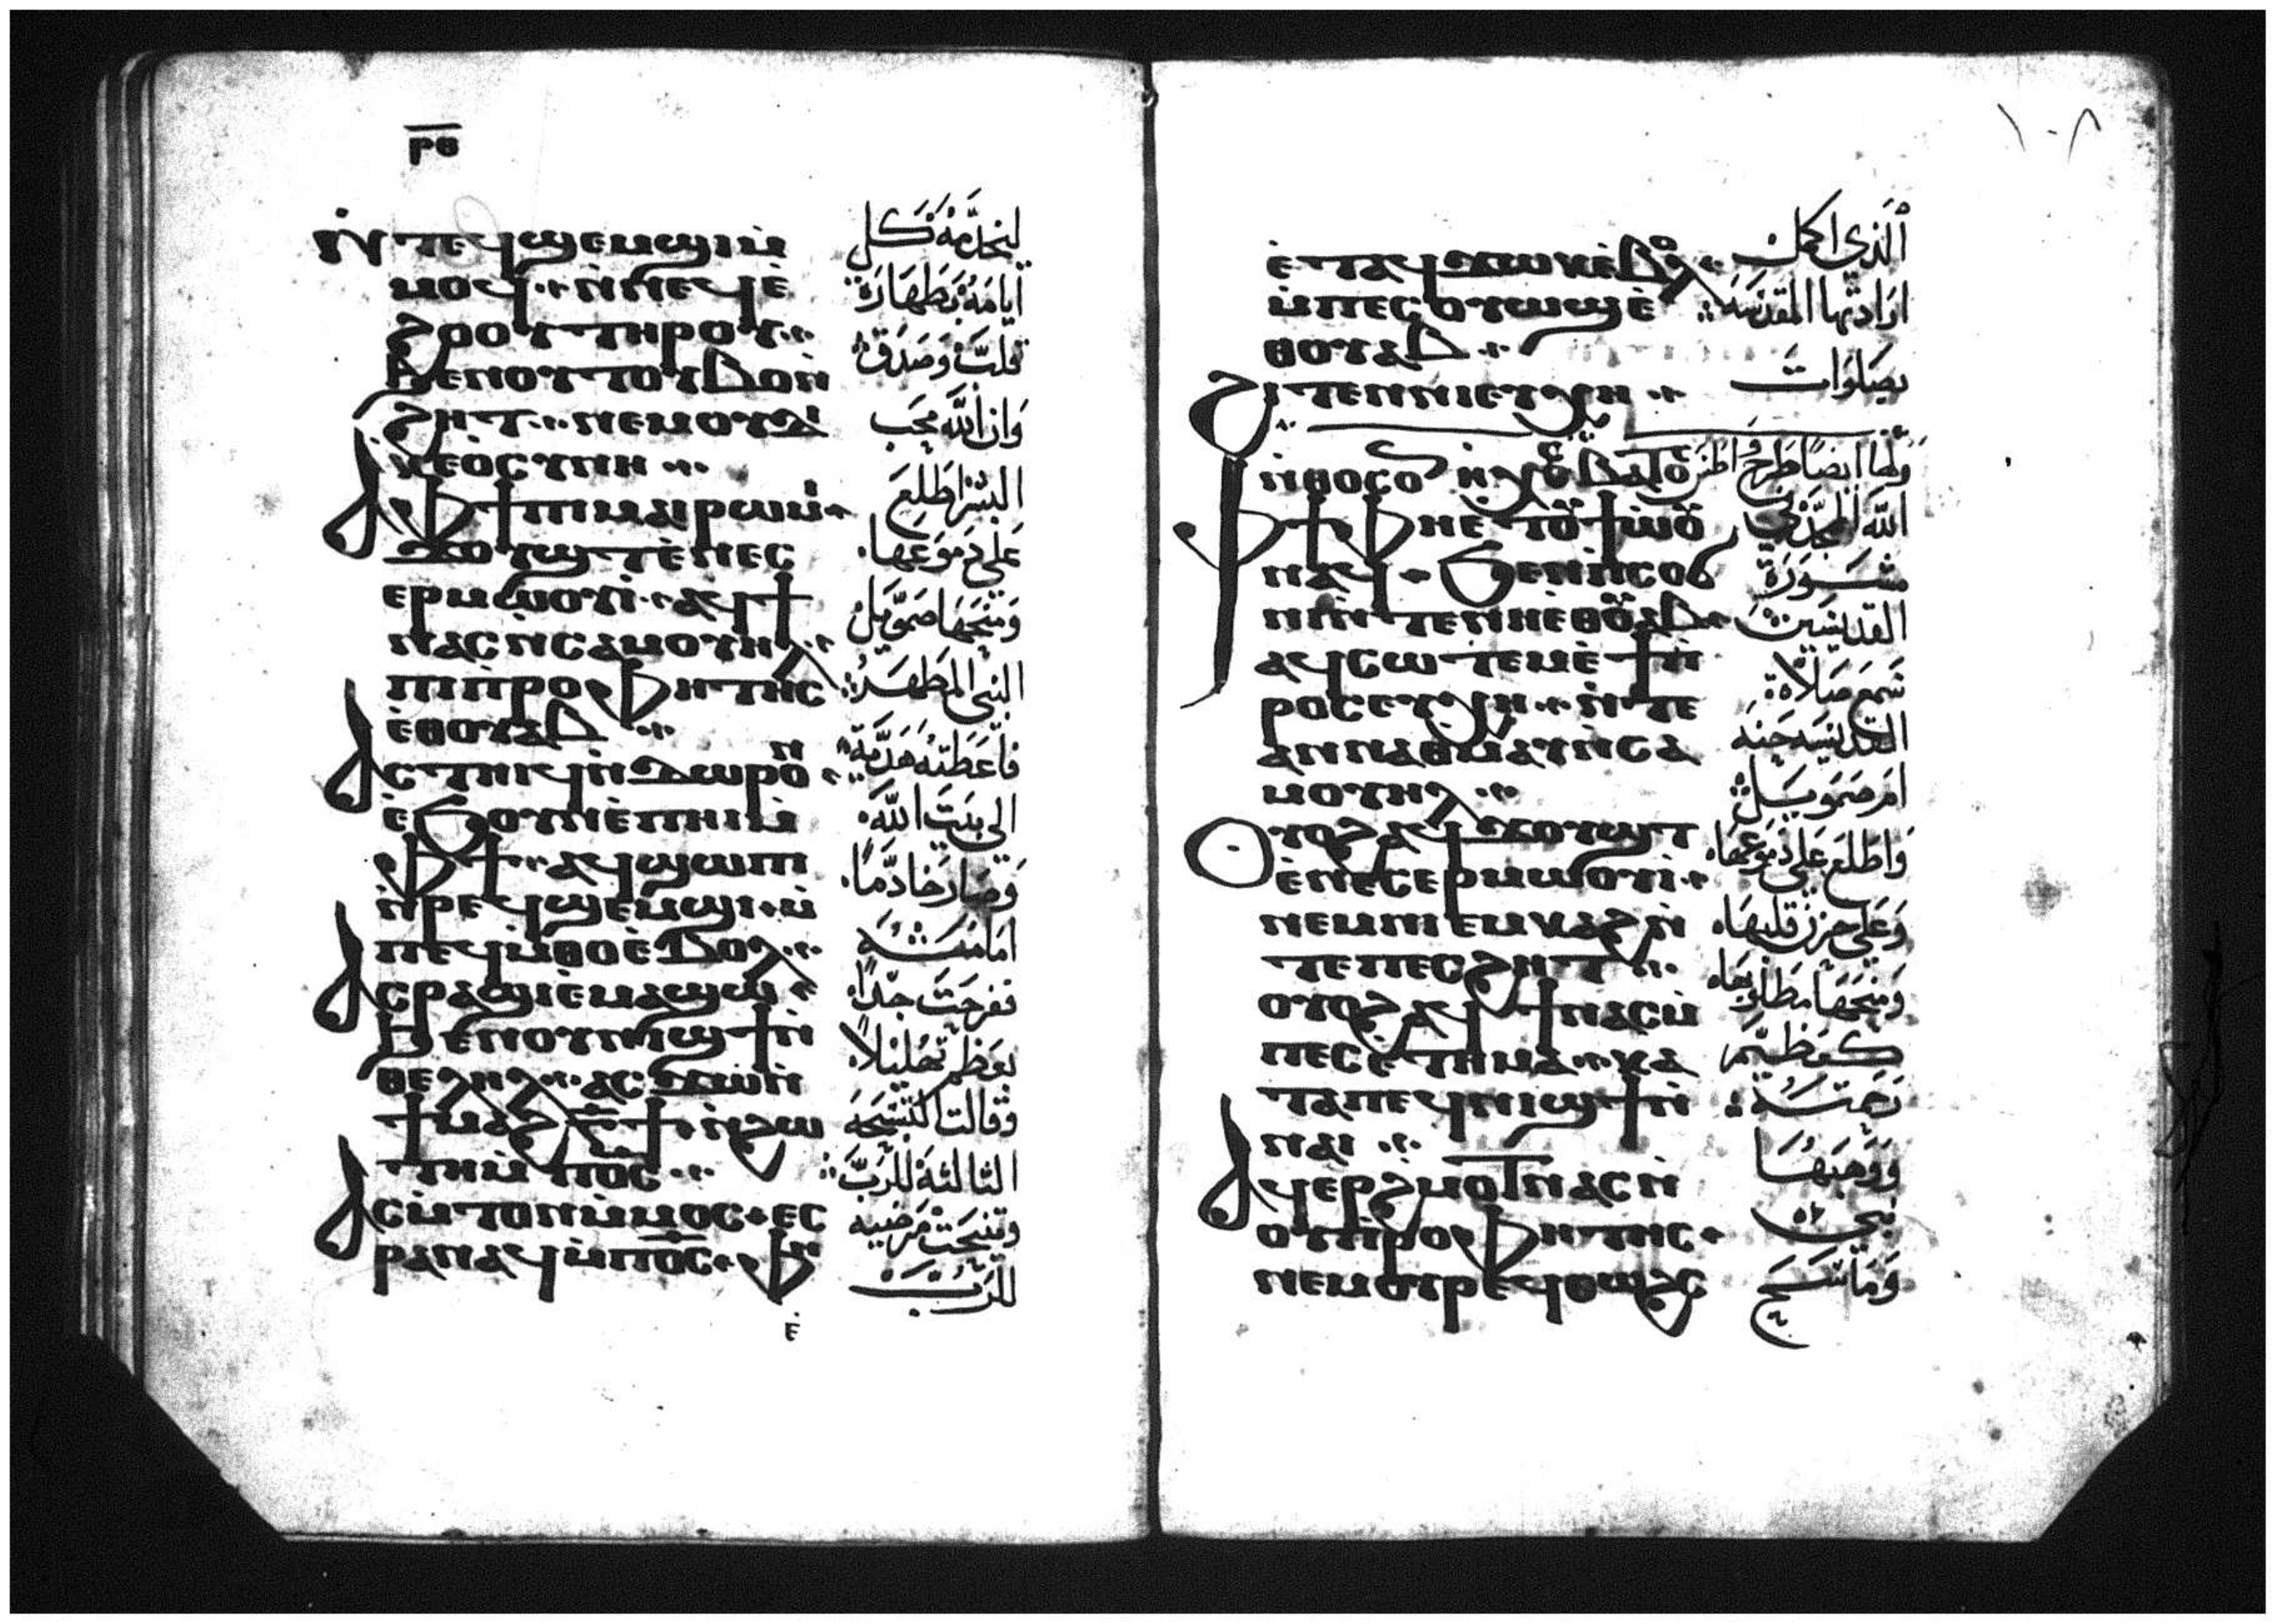 ⲣ̅ⲑ̅
ⲛ̀ⲧⲉϥϣⲉⲙϣⲓⲙ̀
ⲙⲟϥ ⲛ̀ⲛⲉϥⲉ̀
ϩⲟⲟⲩ ⲧⲏⲣⲟⲩ
ϧⲉⲛⲟⲩⲧⲟⲩⲃⲟⲛ̀
ϩⲏⲧ ⲛⲉⲙⲟⲩⲇⲓ
ⲕⲉⲟ̀ⲥⲩⲛⲏ
ⲁ̀ⲫϯⲡⲓⲙⲁⲓⲣⲱⲙⲓ
ϫⲟⲩϣⲧⲉ̀ⲛⲉⲥ
ⲉⲣⲙⲱⲟⲩⲓ̀ ⲁϥϯ
ⲛⲁⲥⲛ̀ⲥⲁⲙⲟⲩⲏⲗ
ⲡⲓⲡ̀ⲣⲟⲫⲏⲧⲏⲥ
ⲉ̀ⲑⲟⲩⲁⲃ
ⲁⲥⲧⲏⲓϥⲛ̀ⲇⲱⲣⲟⲛ
ⲉ̀ϧⲟⲩⲛⲉ̀ⲡⲏⲓⲙ̀
ⲫϯ ⲁϥϣⲱⲡⲓ
ⲛ̀ⲣⲉϥϣⲉⲙϣⲓ ⲙ̀
ⲡⲉϥⲙ̀ⲑⲟⲉ̀ⲃⲟⲗ
ⲁⲥⲣⲁϣⲓⲉ̀ⲙⲁϣⲱ
ϧⲉⲛⲟⲩⲛⲓϣϯⲛ̀
ⲑⲉⲗⲏⲗ ⲁⲥϫⲱⲛ̀
ϯⲙⲁϩⲅ̅ϯ ⲛ̀ϩⲱ
ⲧⲏⲙ̀ⲡⲟ̅ⲥ̅
ⲁⲥⲙ̀ⲧⲟⲛⲙ̀ⲙⲟⲥ ⲉⲥ
ⲣⲁⲛⲁϥⲙ̀ⲡⲟ̅ⲥ̅ ⲫϯ
ⲉ̀
ليخدَمهُ كل
ايامَهُ بَطهَارَة
قلبَ وَصَدَق
وَان اللّه محَب
البشر اطَلَعَ
عَلي دمَوعَهَا
وَمنحَهَا صَمّوَيل
النبَى المَطهَر
فاعَطتهُ هَدَية
الى بَيَت اللّه
وَصَار خَادَمَا
امَامَهُ
ففرحَتَ جدًا
بعَظم تهَليلاً
وَقالت التسَبحَه
الثالثهَ للرَبَ
وتنيحَت مَرضيه
للرَبَ
١٠٨
ⲉ̀ⲧⲁϥϫⲱⲕⲉ̀ⲃⲟⲗ
ⲙ̀ⲡⲉⲥⲟⲩⲱϣⲉ̀
ⲑⲟⲩⲁⲃ
ϩⲓⲧⲉⲛⲛⲓⲉⲩⲭⲏ
ⲛ̀ⲑⲟⲥⲟⲛ
ⲫϯⲫⲏⲉⲧⲟⲩϯⲱⲟⲩ
ⲛⲁϥ ϧⲉⲛⲡ̀ⲥⲟϭ
ⲛⲓⲛ̀ⲧⲉⲛⲏⲉⲑⲟⲩⲁⲃ
ⲁϥⲥⲱⲧⲉⲙⲉ̀ϯⲡ̀
ⲣⲟⲥⲉⲩⲭⲏ ⲛ̀ⲧⲉ
ⲁⲛⲛⲁⲑⲙⲁⲩⲛ̀ⲥⲁ
ⲙⲟⲩⲏⲗ
ⲟⲩⲟϩⲁϥϫⲟⲩϣⲧ
ⲉ̀ⲛⲉⲥⲉⲣⲙⲱⲟⲩⲓ̀
ⲛⲉⲙⲡⲓⲉⲙⲕⲁϩⲛ̀
ⲧⲉⲡⲉⲥϩⲏⲧ
ⲟⲩⲟϩⲁϥϯⲛⲁⲥⲙ̀
ⲡⲉⲥⲉ̀ⲧⲏⲙⲁ ⲕⲁ
ⲧⲁⲡⲉϥⲛⲓϣϯⲛ̀
ⲛⲁⲓ
ⲁϥⲉⲣϩ̀ⲙⲟⲧⲛⲁⲥⲛ̀
ⲟⲩⲡ̀ⲣⲟⲫⲏⲧⲏⲥ
ⲛⲉⲙⲟⲩⲣⲉϥⲑⲱϩⲥ
الّذي اكمَل
ارَادتَها المقدَسَة
بصَلوَات
وَلهَا ايضاً طرَح
اللّه الممجَد في
مشَوَرَة
القديسَين
سَمعَ صَلَاة
القديسَه حَنه
امَ صَمَوَيل
وَاطَلعَ عَلي دمَوعَهَا
وَعَلي حزن قلبهَا
وَمنحَهَا مطَلوبهَا
كعظيَم
رحمَتهُ
وَوَهبَهَا
نبى
وَمَاسَح